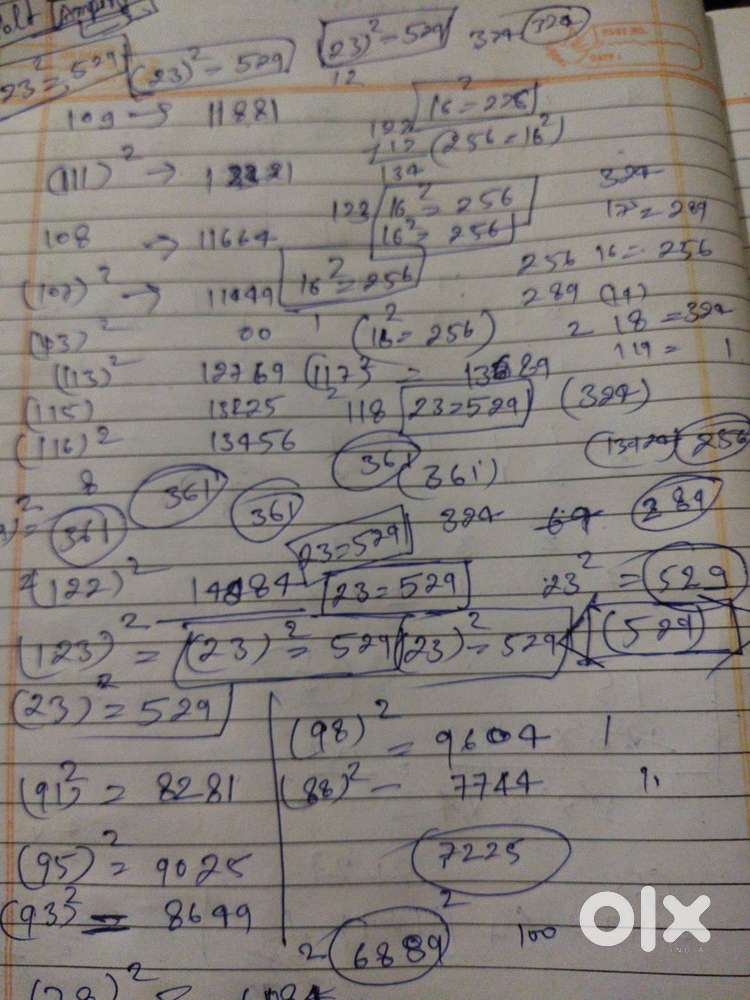 Volt Ampere
23² = 529 (23)² = 529 (23)² = 529 324 324
12
109 → 11881 16² = 226
122
112 (256 = 16²)
(111)² → 12321
134 324
128 16² = 256 17² = 289
108 → 11664 16² = 256
(107)² → 11449 16² = 256 256 16 = 256
289 (17)
(13)² 00 1 (16² = 256) 2 18 = 324
(113)² 12769 (117)² = 13689 119 = 1
(115) 13225 2 118 23 = 529 (324)
(116)² 13456 (13924) 256
8 361 361 (361)
361 361 324 69 289
23 = 529
(122)² 14884 23 = 529 23² = 529
(123)² = (23)² = 529 (23)² = 529 (529)
(23)² = 529
(98)² = 9604 1
(91)² = 8281 (88)² = 7744
(95)² = 9025 7225
(93)² = 8649
2 6889 2 100
(78)² =
olx
INDIA